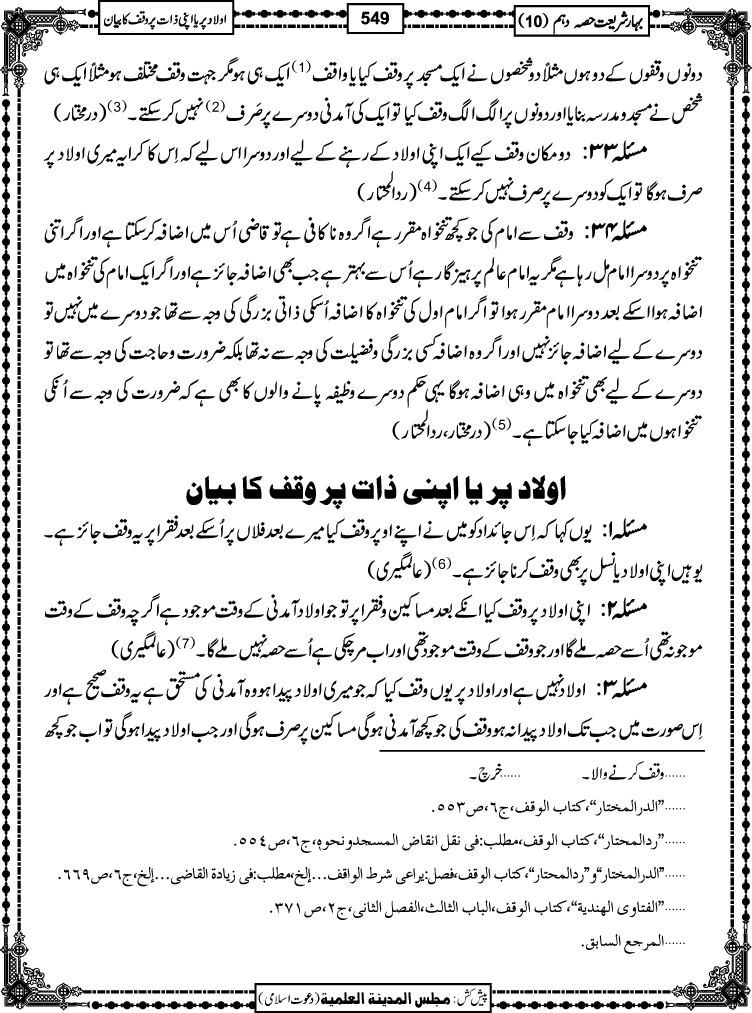 بہار شریعت حصہ دہم (10)
549
اولاد پر یا اپنی ذات پر وقف کا بیان
دونوں وقفوں کے دو ہوں مثلاً دو شخصوں نے ایک مسجد پر وقف کیا یا واقف (1) ایک ہی ہو مگر جہت وقف مختلف ہو مثلاً ایک ہی
شخص نے مسجد و مدرسہ بنایا اور دونوں پر الگ الگ وقف کیا تو ایک کی آمدنی دوسرے پر صَرف (2) نہیں کرسکتے۔ (3) (درمختار)
مسئلہ ۳۳: دو مکان وقف کیے ایک اپنی اولاد کے رہنے کے لیے اور دوسرا اس لیے کہ اِس کا کرایہ میری اولاد پر
صرف ہوگا تو ایک کو دوسرے پر صرف نہیں کرسکتے۔ (4) (ردالمحتار)
مسئلہ ۳۴: وقف سے امام کی جو کچھ تنخواہ مقرر ہے اگر وہ ناکافی ہے تو قاضی اُس میں اضافہ کرسکتا ہے اور اگر اتنی
تنخواہ پر دوسرا امام مل رہا ہے مگر یہ امام عالم پرہیزگار ہے اُس سے بہتر ہے جب بھی اضافہ جائز ہے اور اگر ایک امام کی تنخواہ میں
اضافہ ہوا اسکے بعد دوسرا امام مقرر ہوا تو اگر امام اول کی تنخواہ کا اضافہ اُسکی ذاتی بزرگی کی وجہ سے تھا جو دوسرے میں نہیں تو
دوسرے کے لیے اضافہ جائز نہیں اور اگر وہ اضافہ کسی بزرگی و فضیلت کی وجہ سے نہ تھا بلکہ ضرورت و حاجت کی وجہ سے تھا تو
دوسرے کے لیے بھی تنخواہ میں وہی اضافہ ہوگا یہی حکم دوسرے وظیفہ پانے والوں کا بھی ہے کہ ضرورت کی وجہ سے اُنکی
تنخواہوں میں اضافہ کیا جاسکتا ہے۔ (5) (درمختار، ردالمحتار)
اولاد پر یا اپنی ذات پر وقف کا بیان
مسئلہ ۱: یوں کہا کہ اِس جائداد کو میں نے اپنے اوپر وقف کیا میرے بعد فلاں پر اُسکے بعد فقرا پر یہ وقف جائز ہے۔
یوہیں اپنی اولاد یا نسل پر بھی وقف کرنا جائز ہے۔ (6) (عالمگیری)
مسئلہ ۲: اپنی اولاد پر وقف کیا انکے بعد مساکین و فقرا پر تو جو اولاد آمدنی کے وقت موجود ہے اگرچہ وقف کے وقت
موجود نہ تھی اُسے حصہ ملے گا اور جو وقف کے وقت موجود تھی اور اب مرچکی ہے اُسے حصہ نہیں ملے گا۔ (7) (عالمگیری)
مسئلہ ۳: اولاد نہیں ہے اور اولاد پر یوں وقف کیا کہ جو میری اولاد پیدا ہو وہ آمدنی کی مستحق ہے یہ وقف صحیح ہے اور
اِس صورت میں جب تک اولاد پیدا نہ ہو وقف کی جو کچھ آمدنی ہوگی مساکین پر صرف ہوگی اور جب اولاد پیدا ہوگی تو اب جو کچھ
......وقف کرنے والا۔ ......خرچ۔
......”الدرالمختار“،کتاب الوقف،ج٦،ص٥٥٣.
......”ردالمحتار“،کتاب الوقف،مطلب:فی نقل انقاض المسجد ونحوہ،ج٦،ص٥٥٤.
......”الدرالمختار“و”ردالمحتار“،کتاب الوقف،فصل:یراعی شرط الواقف...إلخ،مطلب:فی زیادة القاضی...إلخ،ج٦،ص٦٦٩.
......”الفتاوی الهندیة“،کتاب الوقف،الباب الثالث،الفصل الثانی،ج٢،ص٣٧١.
......المرجع السابق.
پیش کش: مجلس المدینة العلمیة (دعوت اسلامی)